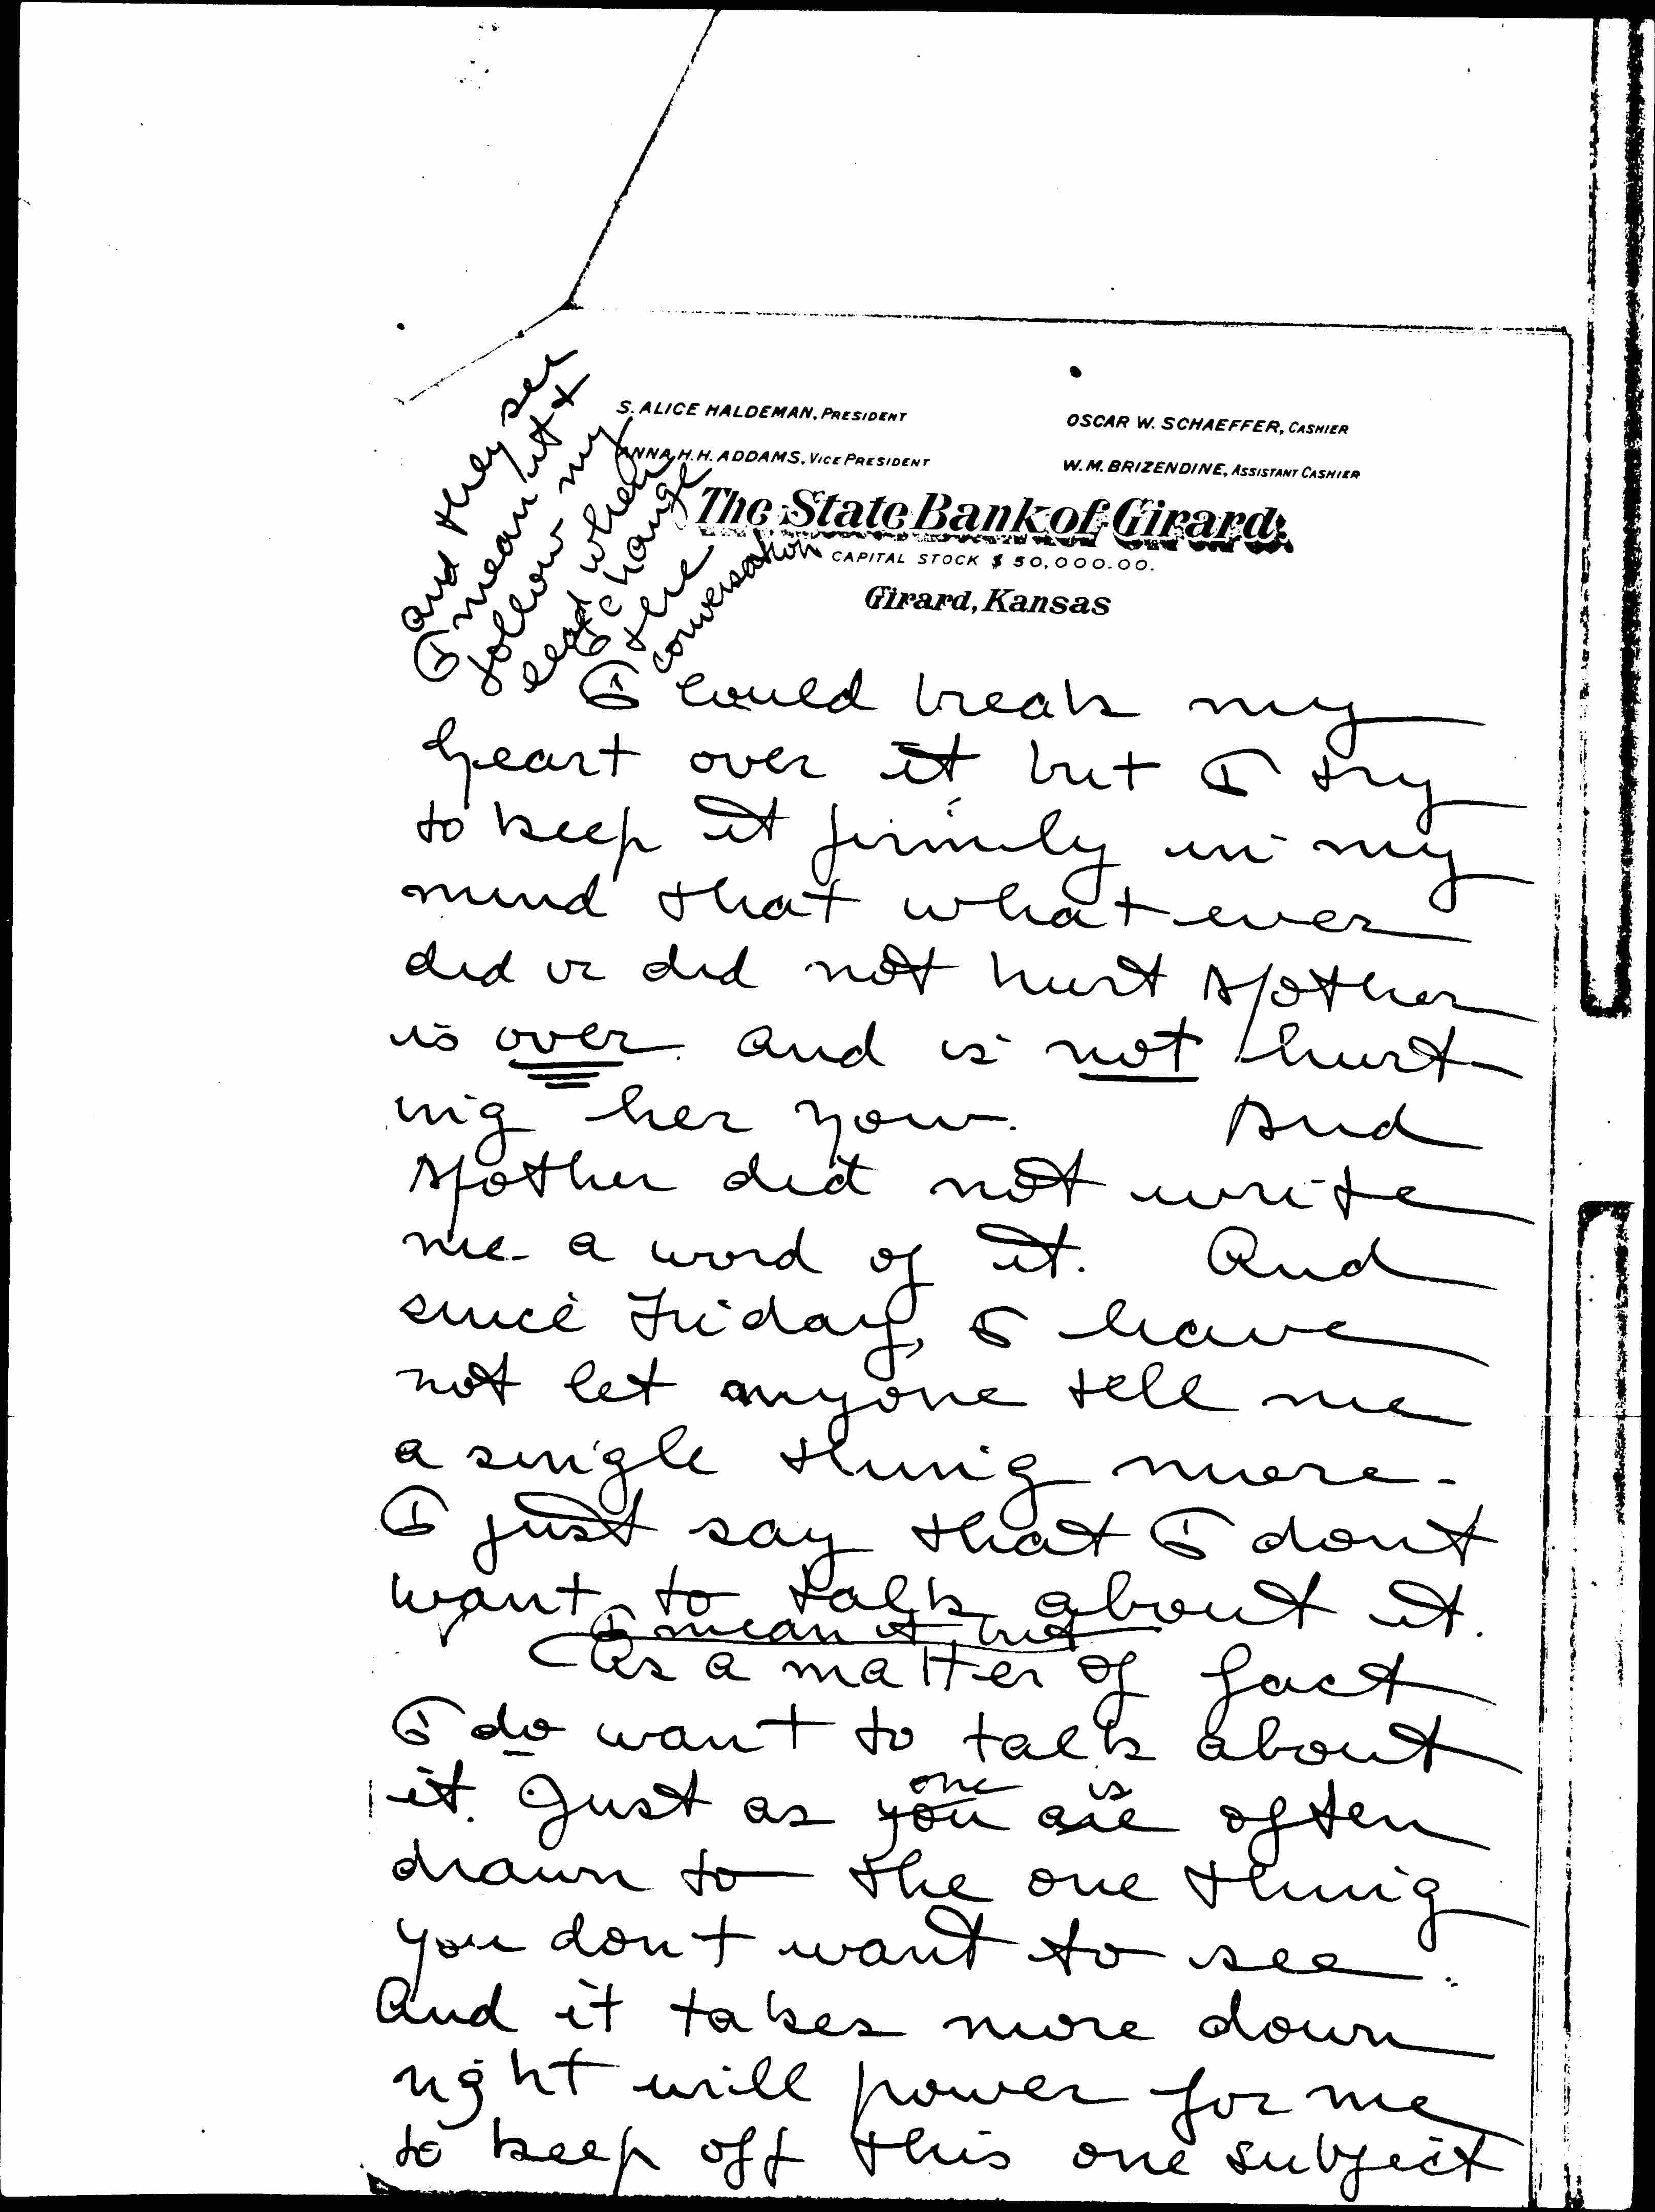 and they see
I mean it &
follow my
lead when
I change
the
conversation
S. ALICE HALDEMAN, PRESIDENT
OSCAR W. SCHAEFFER, CASHIER
ANNA H. H. ADDAMS, VICE PRESIDENT
W. M. BRIZENDINE, ASSISTANT CASHIER
The State Bank of Girard.
CAPITAL STOCK $ 50,000.00.
Girard, Kansas
I could break my
heart over it but I try
to keep it firmly in my
mind that whatever
did or did not hurt Mother
is over and is not hurt-
ing her now. And
Mother did not write
me a word of it. And
since Friday, I have
not let anyone tell me
a single thing more.
I just say that I dont
want to talk about it.
I mean it but
As a matter of fact
I do want to talk about
it. Just as you are often
one is
drawn to the one thing
you don't want to see.
And it takes more down
right will power for me
to keep off this one subject